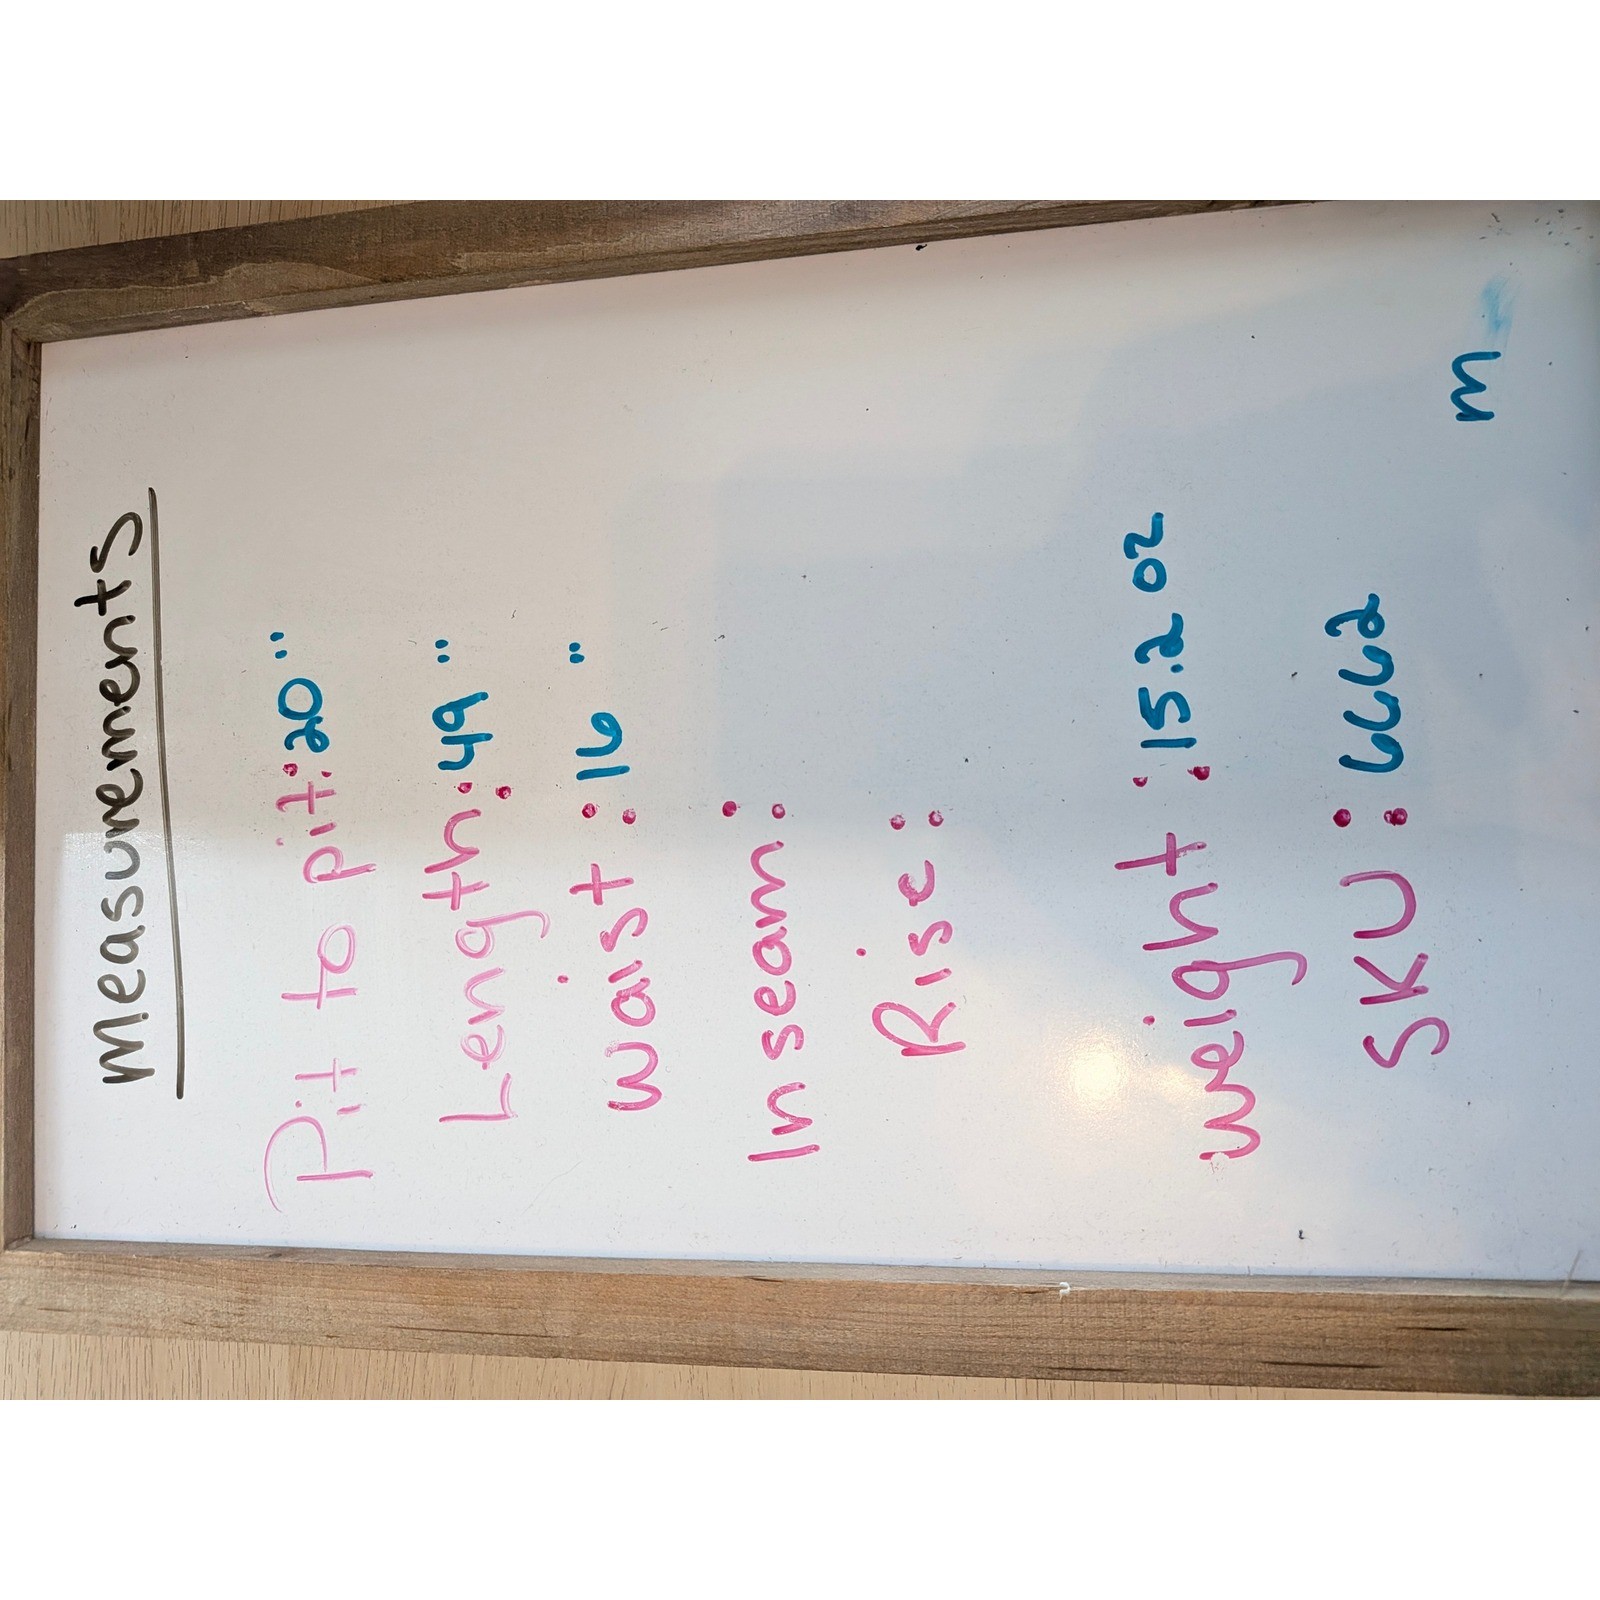 Measurements
Pit to pit: 20"
Length: 49"
Waist: 16"
Inseam:
Rise:
Weight: 15.2 oz
SKU: 6662
m